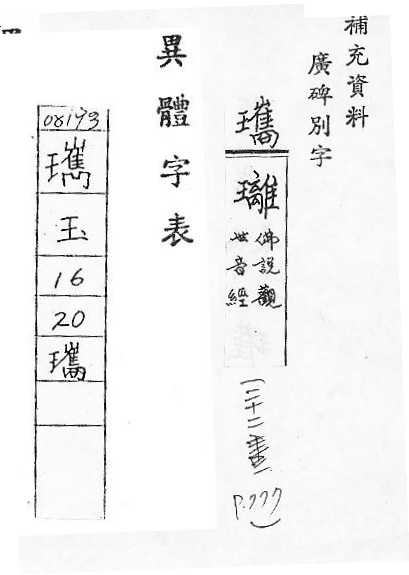 補充資料
廣碑別字
瓗
佛説觀
世音經
(二十二畫
P.777)
異體字表
08193
瓗
玉
16
20
瓗